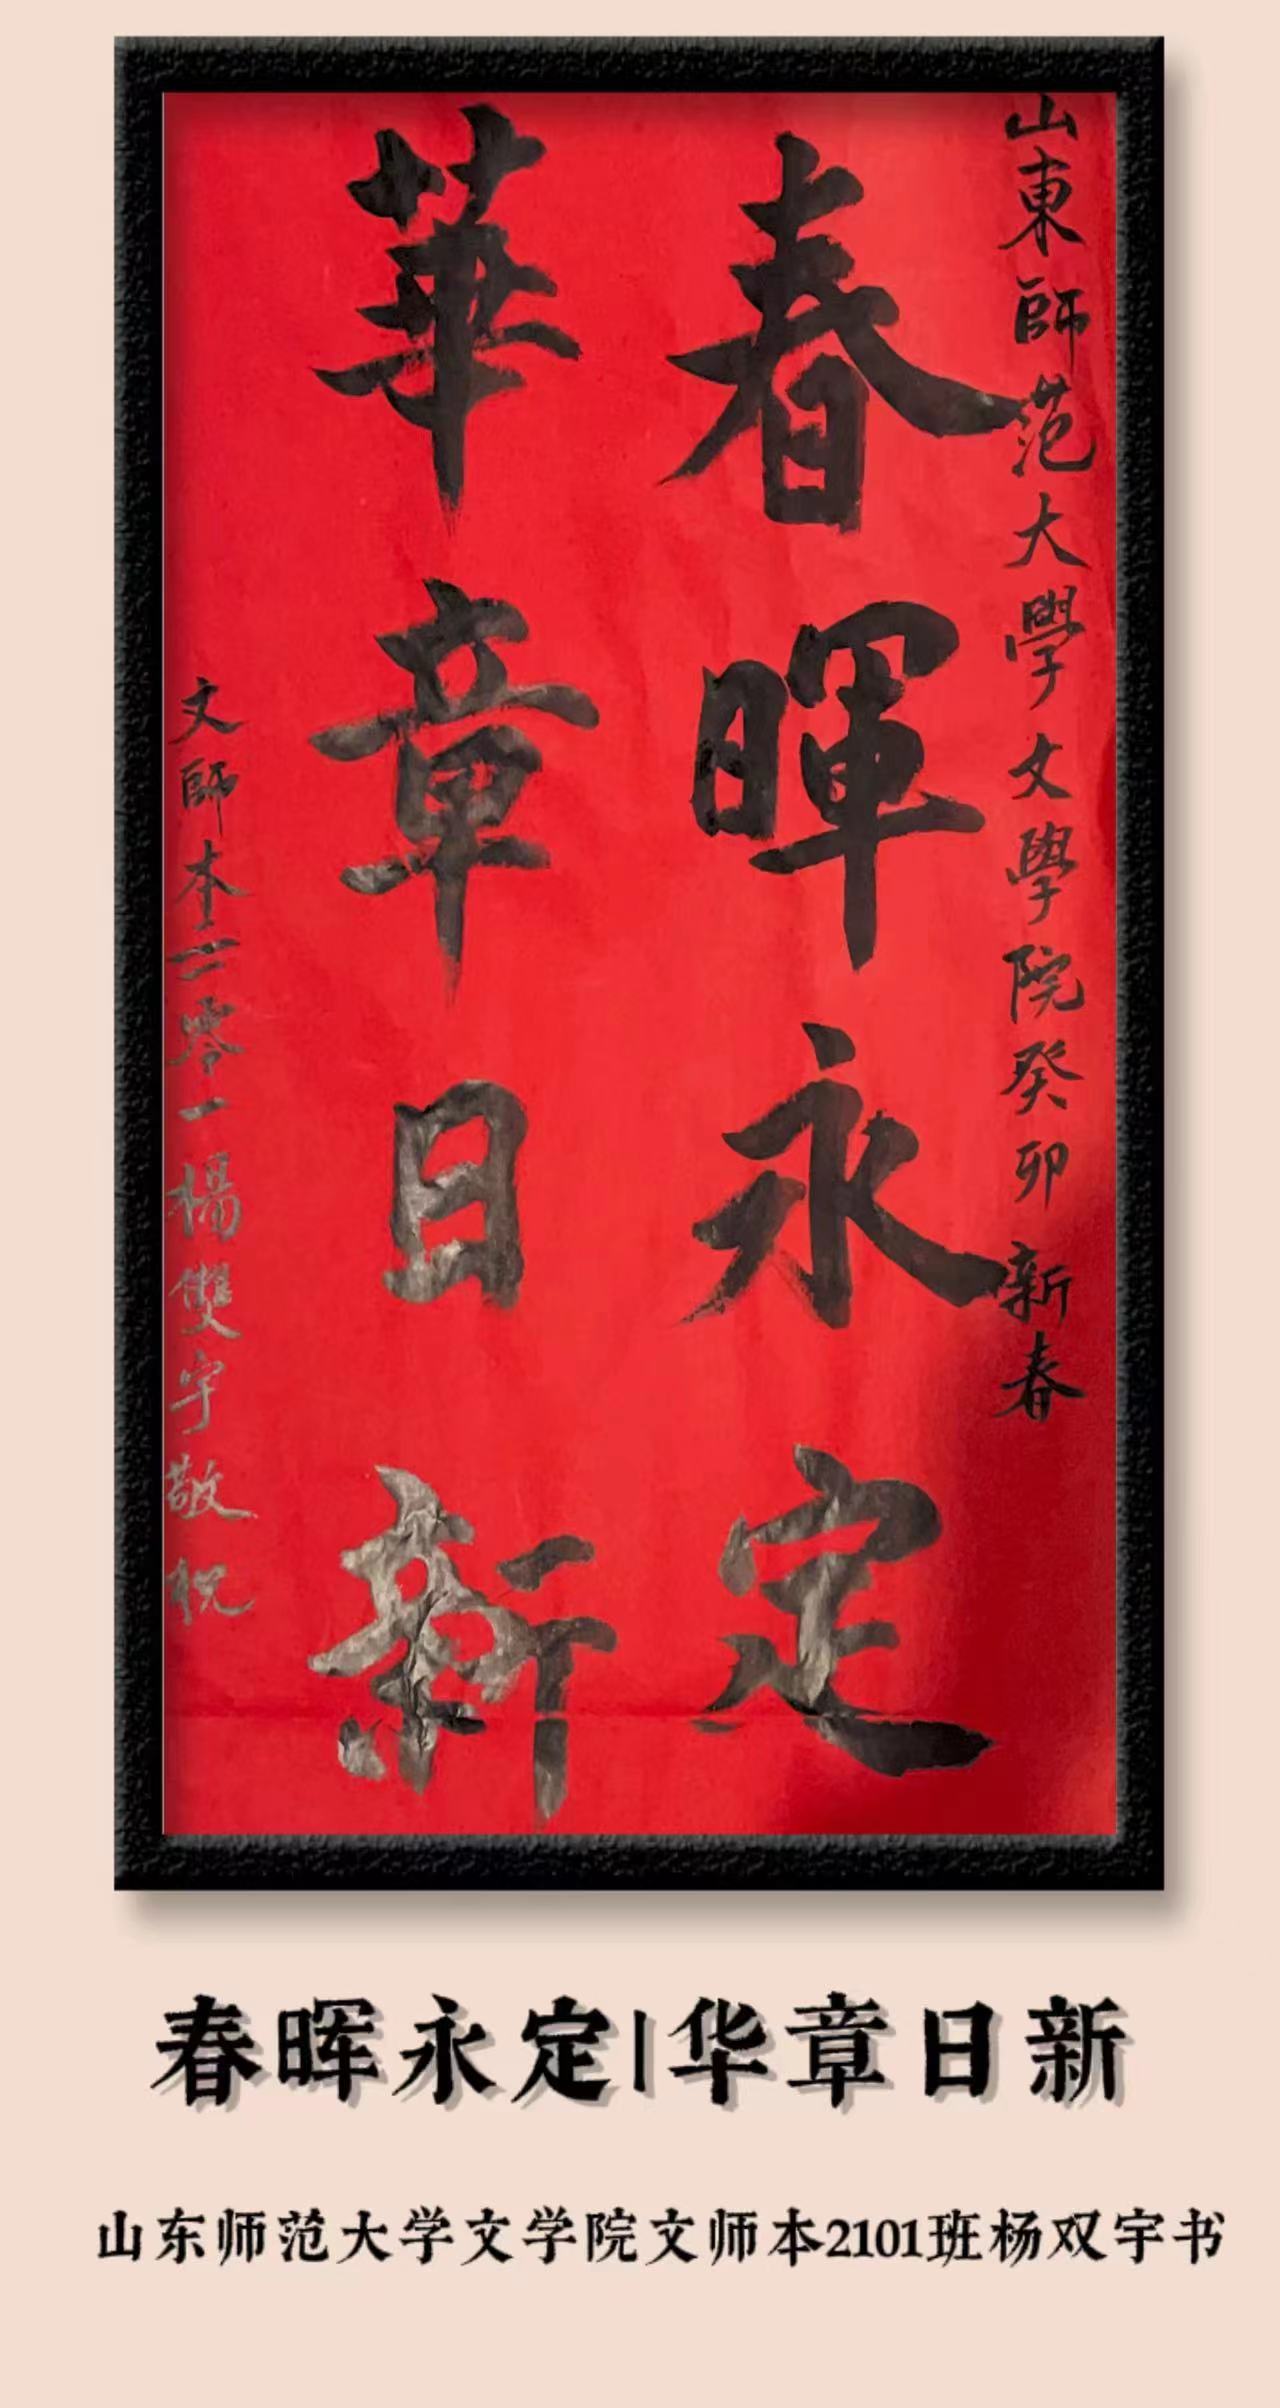 山東師范大學文學院癸卯新春
春暉永定
華章日新
文師本二一零一楊雙宇敬祝
春晖永定|华章日新
山东师范大学文学院文师本2101班杨双宇书